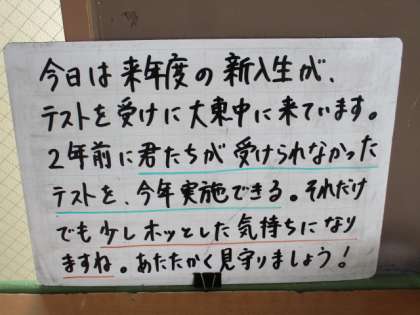 今日は来年度の新入生が、
テストを受けに大東中に来ています。
2年前に君たちが受けられなかった
テストを、今年実施できる。それだけ
でも少しホッとした気持ちになり
ますね。あたたかく見守りましょう！